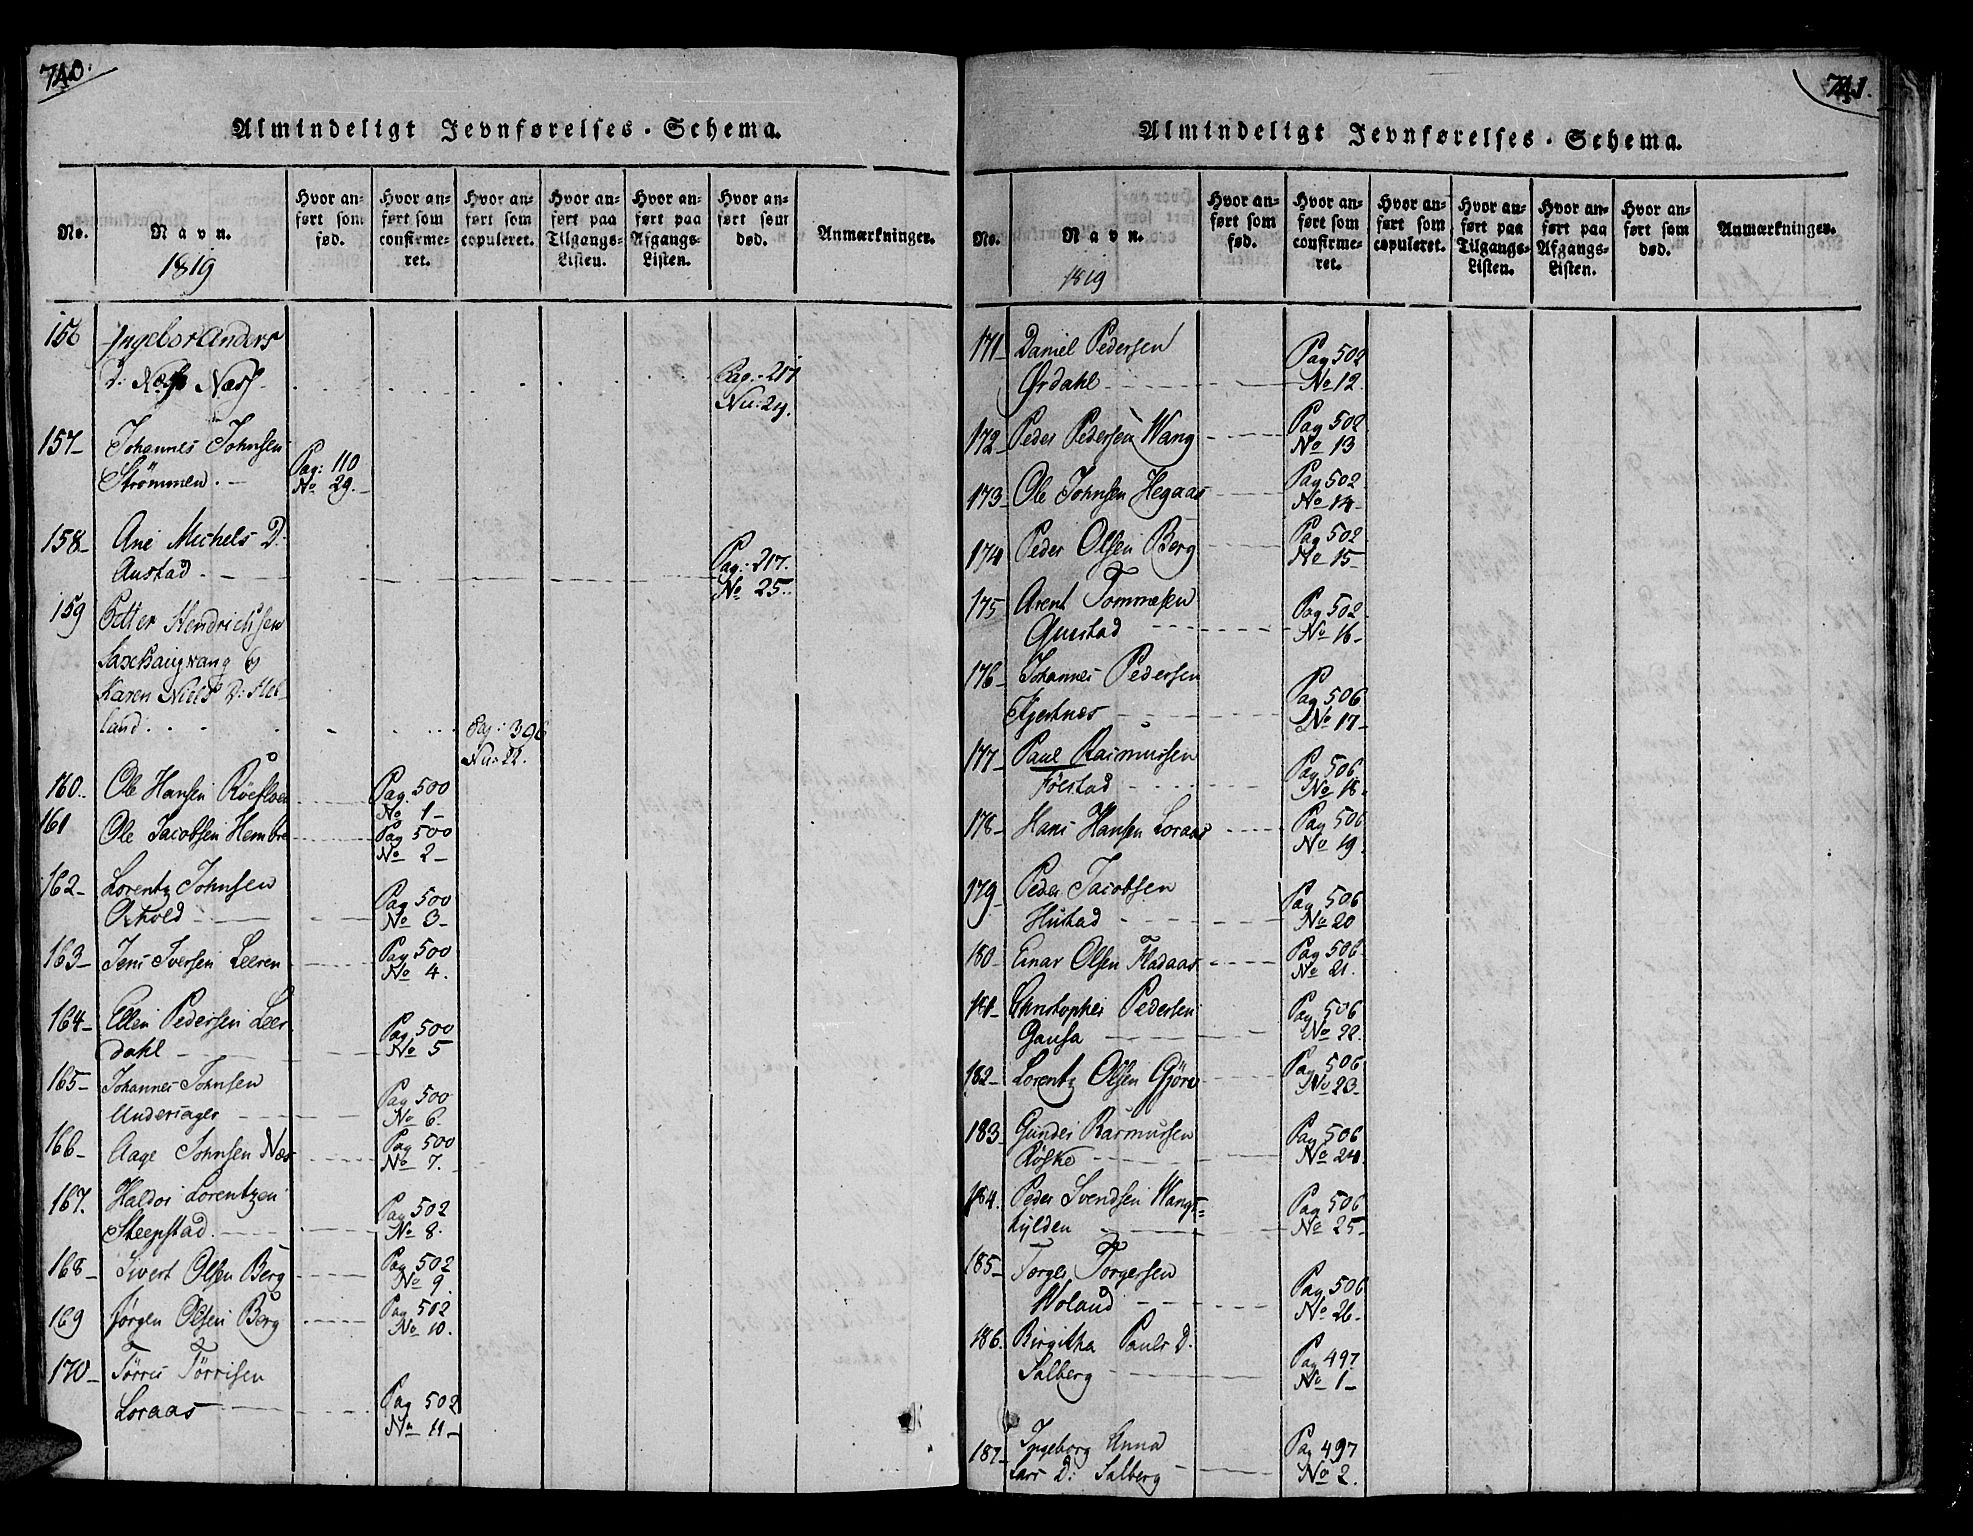 740.
Almindeligt Jevnførelses-Schema.
No.
Navn.
1819
Hvor anført som fød.
Hvor anført som confirmeret.
Hvor anført som copuleret.
Hvor anført paa Tilgangs-Listen.
Hvor anført paa Afgangs-Listen.
Hvor anført som død.
Anmærkninger.
156 Ingebor Anders
D: Næss Pag: 217
Nu: 24.
157 Johannes Johnsen Pag: 110
Strömmen. No 29.
158 Ane Michels D: Pag: 217.
Austad No 25.
159 Petter Hendrichsen
Saxhaugvang og
Karen Niels D: Hel-
land Pag: 396
Nu: 22.
160. Ole Hansen Pag. 500
No 1
161 Ole Jacobsen Hembre Pag 500
No 2
162 Lorentz Johnsen Pag 500
No 3
163 Jens Iversen Leeren Pag 500
No 4.
164 Ellen Pedersen Leer- Pag 500
dahl No 5
165 Johannes Johnsen Pag 500
No 6.
166 Aage Johnsen Næs Pag 500
No 7.
167. Haldor Lorentzen Pag 502
No 8.
168 Sivert Olsen Berg Pag 502
No 9.
169 Jørgen Olsen Berg Pag 502
No 10.
170 Törris Törrisen Pag 502
Loraas No 11
741.
Almindeligt Jevnførelses-Schema.
No.
Navn.
1819
Hvor anført som fød.
Hvor anført som confirmeret.
Hvor anført som copuleret.
Hvor anført paa Tilgangs-Listen.
Hvor anført paa Afgangs-Listen.
Hvor anført som død.
Anmærkninger.
171 Daniel Pedersen Pag 502
Ørdahl No 12.
172 Peder Pedersen Wang Pag 502
No 13
173 Ole Johnsen Hegaas Pag 502
No 14
174 Peder Olsen Berg Pag 502
No 15
175 Arent Tommesen Pag 502
No 16
176 Johannes Pedersen Pag 506
Kjerknes No 17
177 Paul Rasmussen Pag 506
No 18.
178 Hans Hansen Loraas Pag 506
No 19.
179 Peder Jacobsen Pag 506
Hustad No 20
180 Einar Olsen Fladaas Pag 506
No 21.
181 Christopher Pedersen Pag 506
No 22.
182 Lorentz Olsen Gjörv Pag 506
No 23
183 Gunder Rasmussen Pag 506
Röske No 24.
184. Peder Svendsen Wangs- Pag 506
hylden No 25
185 Torger Torgersen Pag 506
Woland No 26.
186. Birgitha Pauls D. Pag 497
Salberg No 1
187 Ingeborg Anna Pag 497
Lars D: Salberg No 2.